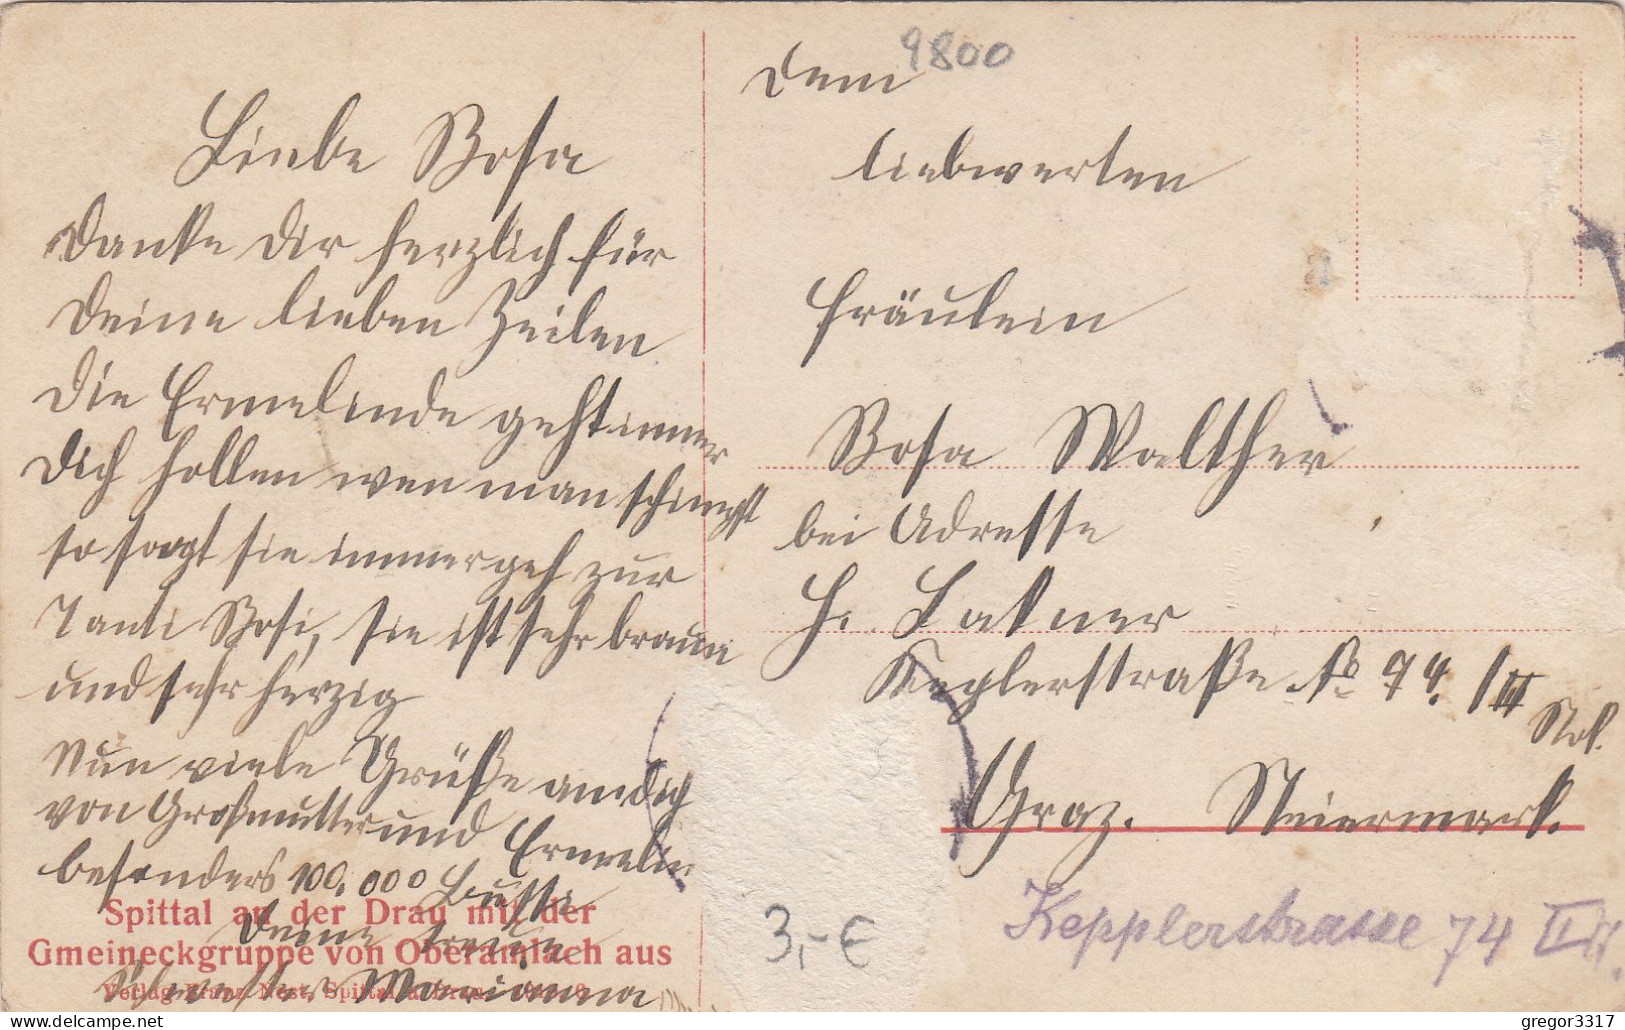 9800
Liebe Rosa
Danke Dir herzlich für
Deine lieben Zeilen
Die Ermelinde geht immer
Dich hollen wen man schimpft
so sagt sie immer geh zur
Tanti Rosi, sie ist sehr braun
und sehr herzig
Nun viele Grüße an dich
von Großmutter und Ermelin
besonders 100.000 Bussi
Deine treue
Schwester Marianna
Spittal an der Drau mit der
Gmeineckgruppe von Oberamlach aus
Verlag Franz Spittal a.
Dem
liebwerten
Fräulein
Rosa Walther
bei Adresse
H. Lakner
Keplerstraße No 74. /III
Graz. Steiermark.
Kepplerstrasse 74 III
3,-€
gregor3317